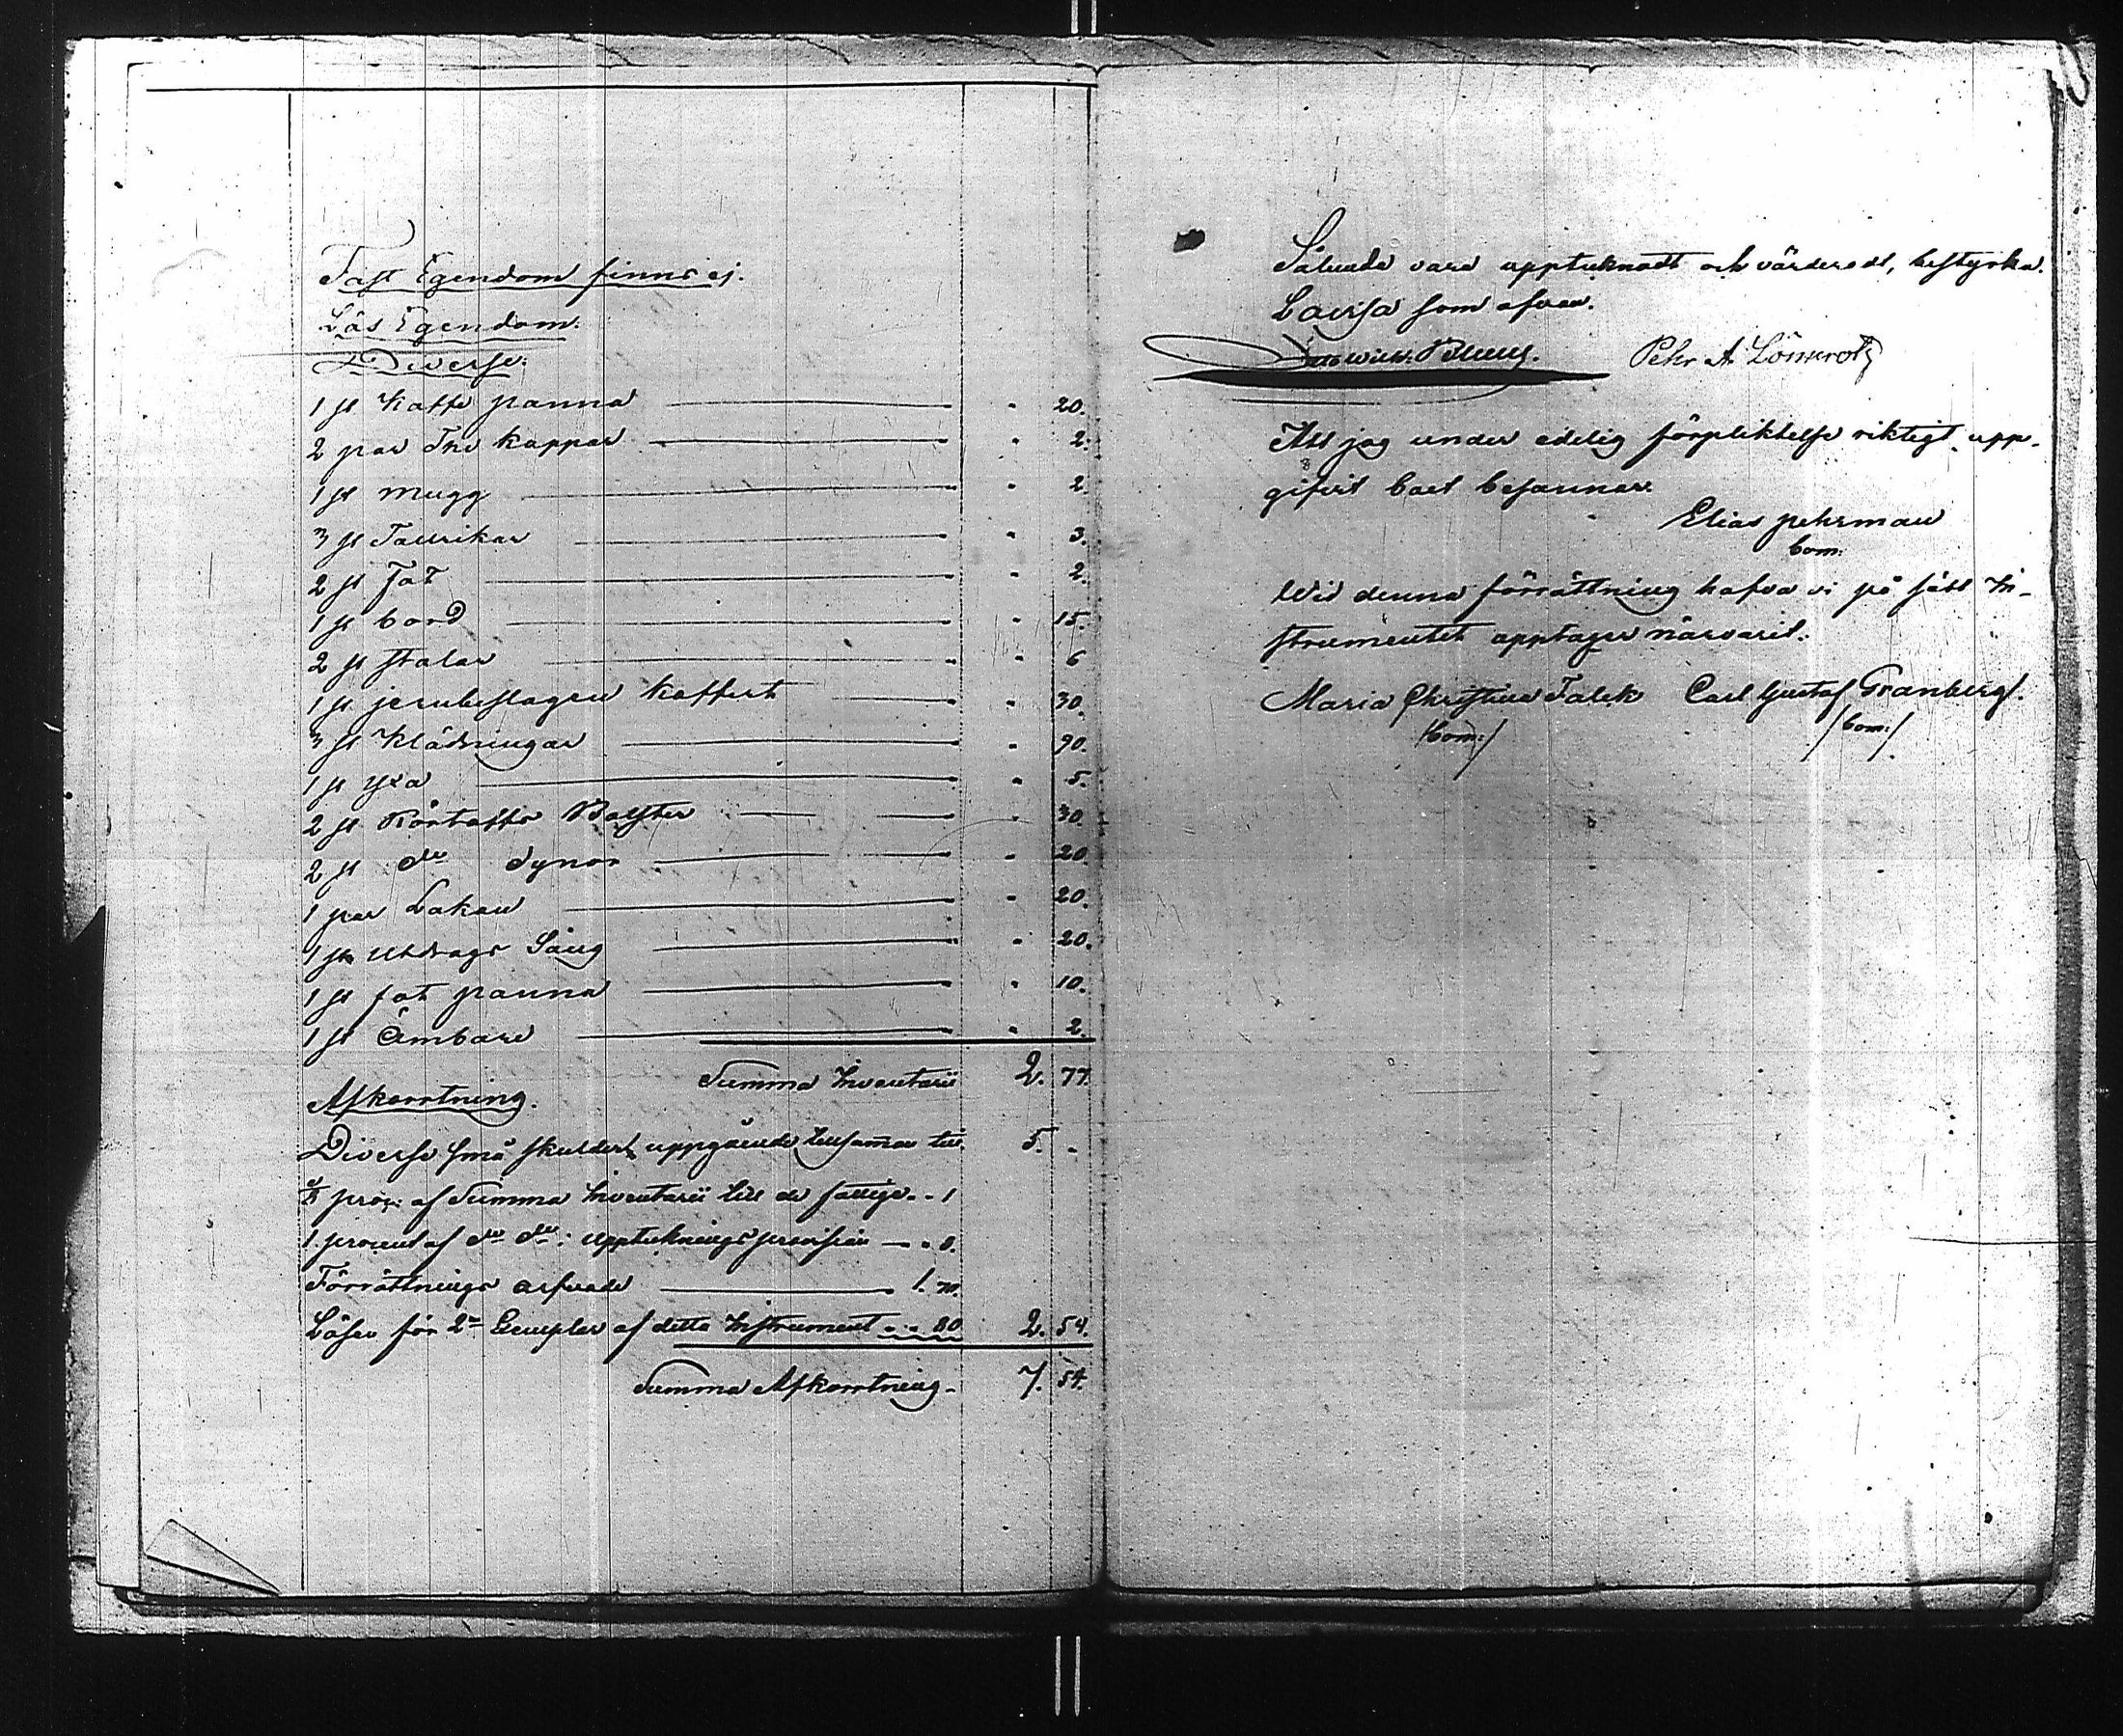 Fast Egendom finns ej.
Lös Egendom.
Diverse:
1 st Kaffe panna " 20.
2 par The koppar " 2.
1 st mugg " 2.
3 st Tallrikar " 3.
2 st Fat " 2.
1 st bord " 15.
2 st stolar " 6
1 st jernbeslagen koffert " 30.
3 st Klädningar " 90.
1 st yxa " 5.
2 st Bolster " 30.
2 st do dynor " 20.
1 par Lakan " 20.
1 st utdrags Säng " 20.
1 st fat panna " 10.
1 st Ämbare " 2.
Summa Inventarii 2. 77.
Afkortning.
Diverse små skulder uppgående tillsamman till 5. "
proc: af Summa Inventarii till de fattige " 1
1. procent af do do: uppteknings provision
Förrättnings arfvode 1.
Lösen för 2ne Exemplar af detta Instrument " 80 2. 54.
Summa Afkortning 7. 54.
Sålunda vara upptecknadt och värderadt, bestyrka.
Lovisa som ofvan.
Pehr A. Lönnrot
Att jag under edelig förpliktelse riktigt upp-
gifvit boet besannar.
Elias pehrman
bom:
Wid denna förrättning hafva vi på sätt In-
strumentet upptager närvarit.
Maria Christina Falck Carl Gustaf Granberg.
/bom:/ /bom:/